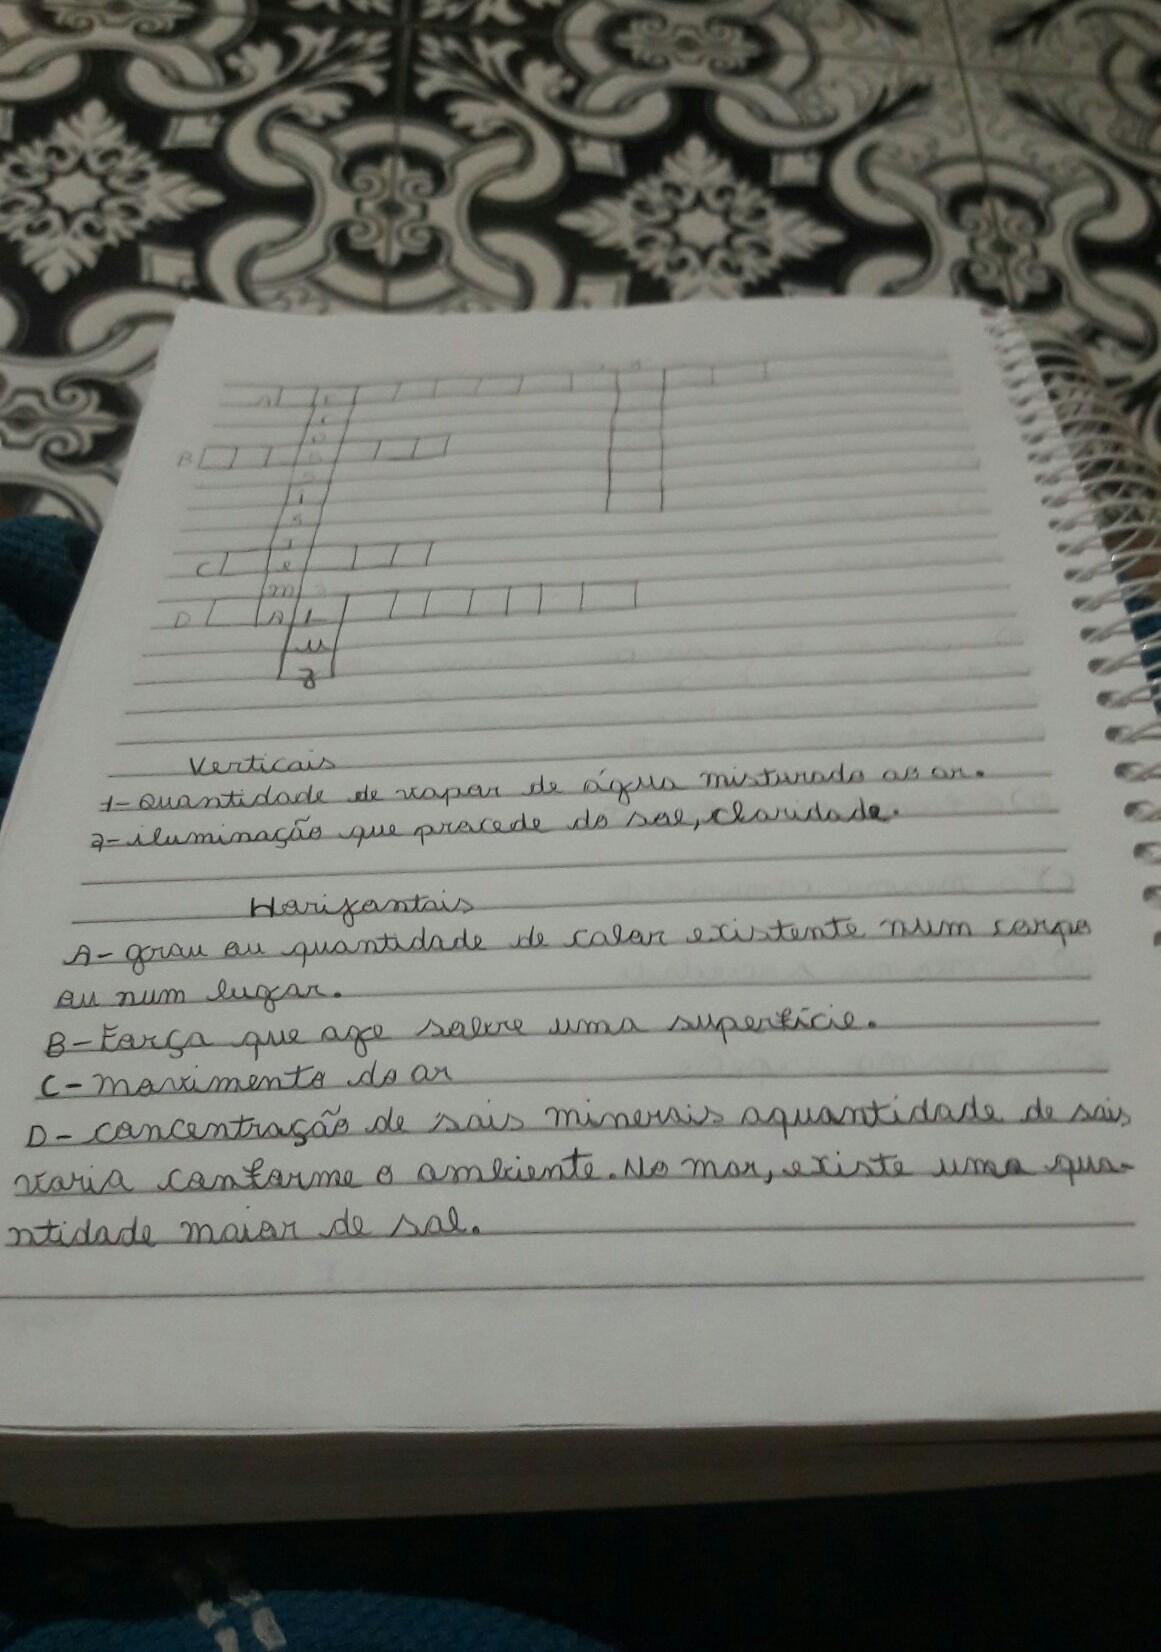 A
B
C
D
m
A L
u
z
Verticais
1-Quantidade de vapor de água misturado ao ar.
2-iluminação que procede do sol, claridade.
Horizontais
A- grau ou quantidade de calor existente num corpo
ou num lugar.
B-Força que age sobre uma superfície.
C-movimento do ar
D-concentração de sais minerais a quantidade de sais
varia conforme o ambiente. No mar, existe uma qua-
ntidade maior de sal.